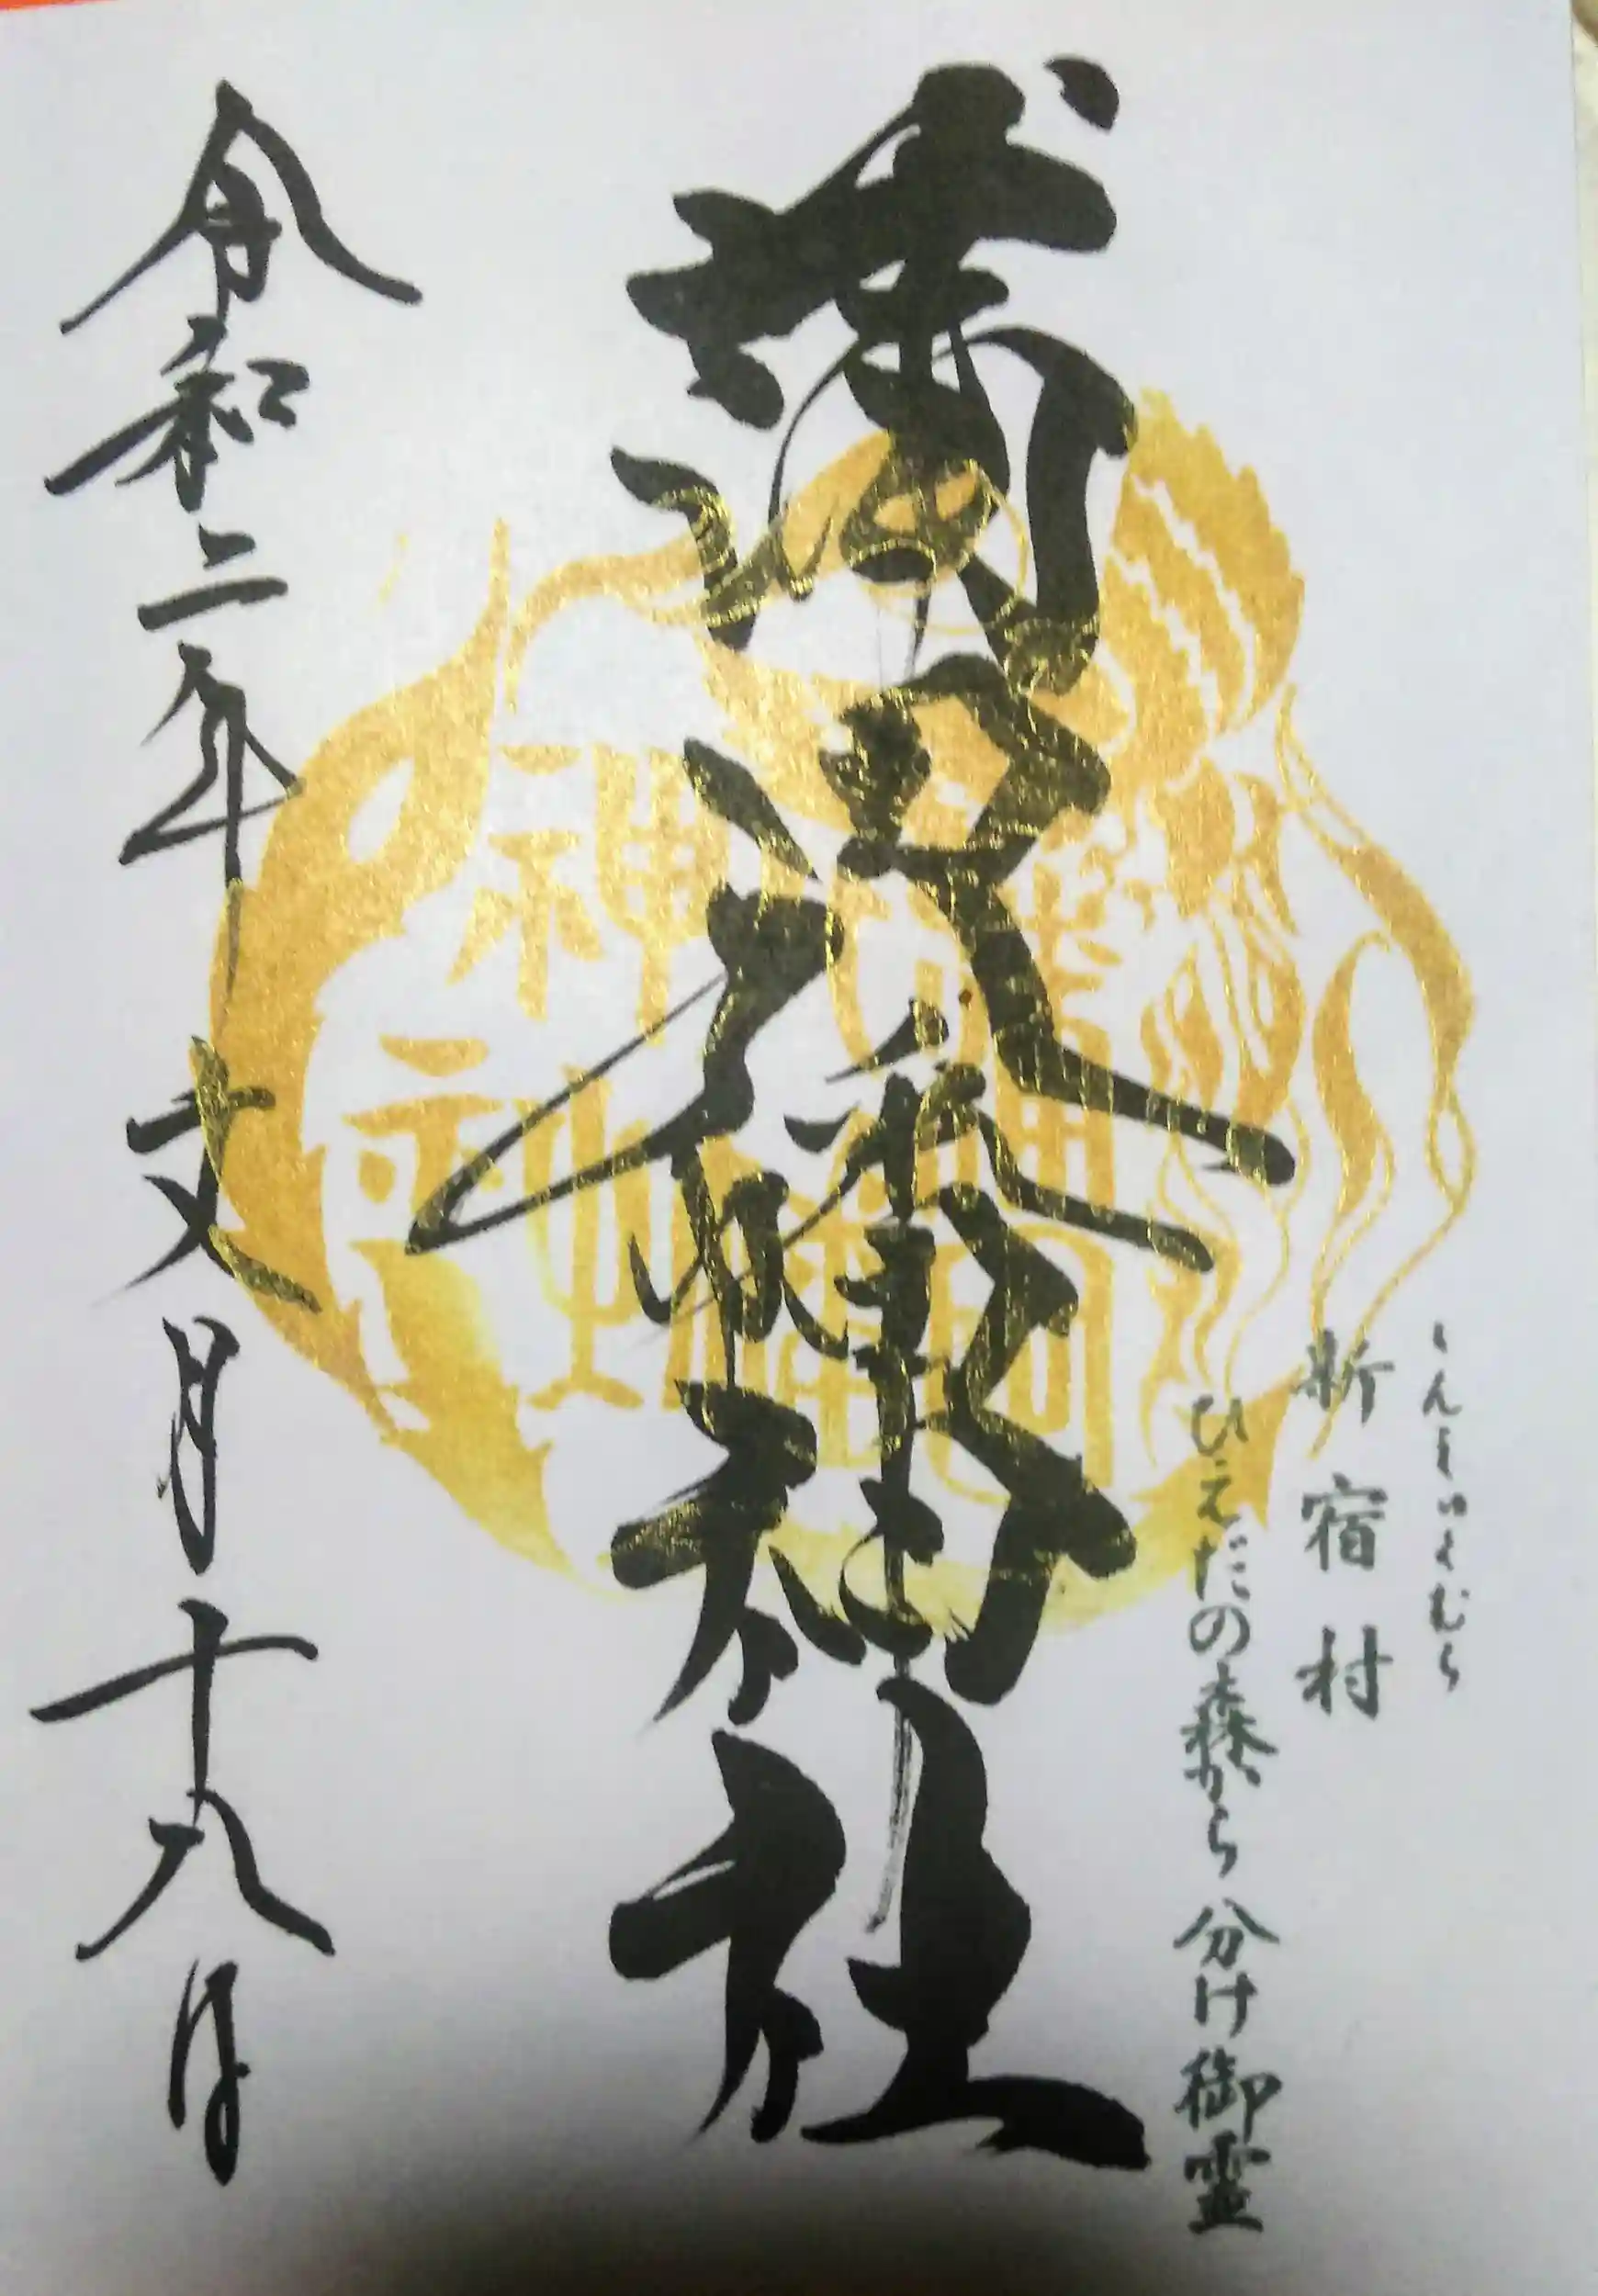 しんしゅくむら
新宿村
ひえだの森から分け御霊
蒲田八幡神社
令和二年文月十八日